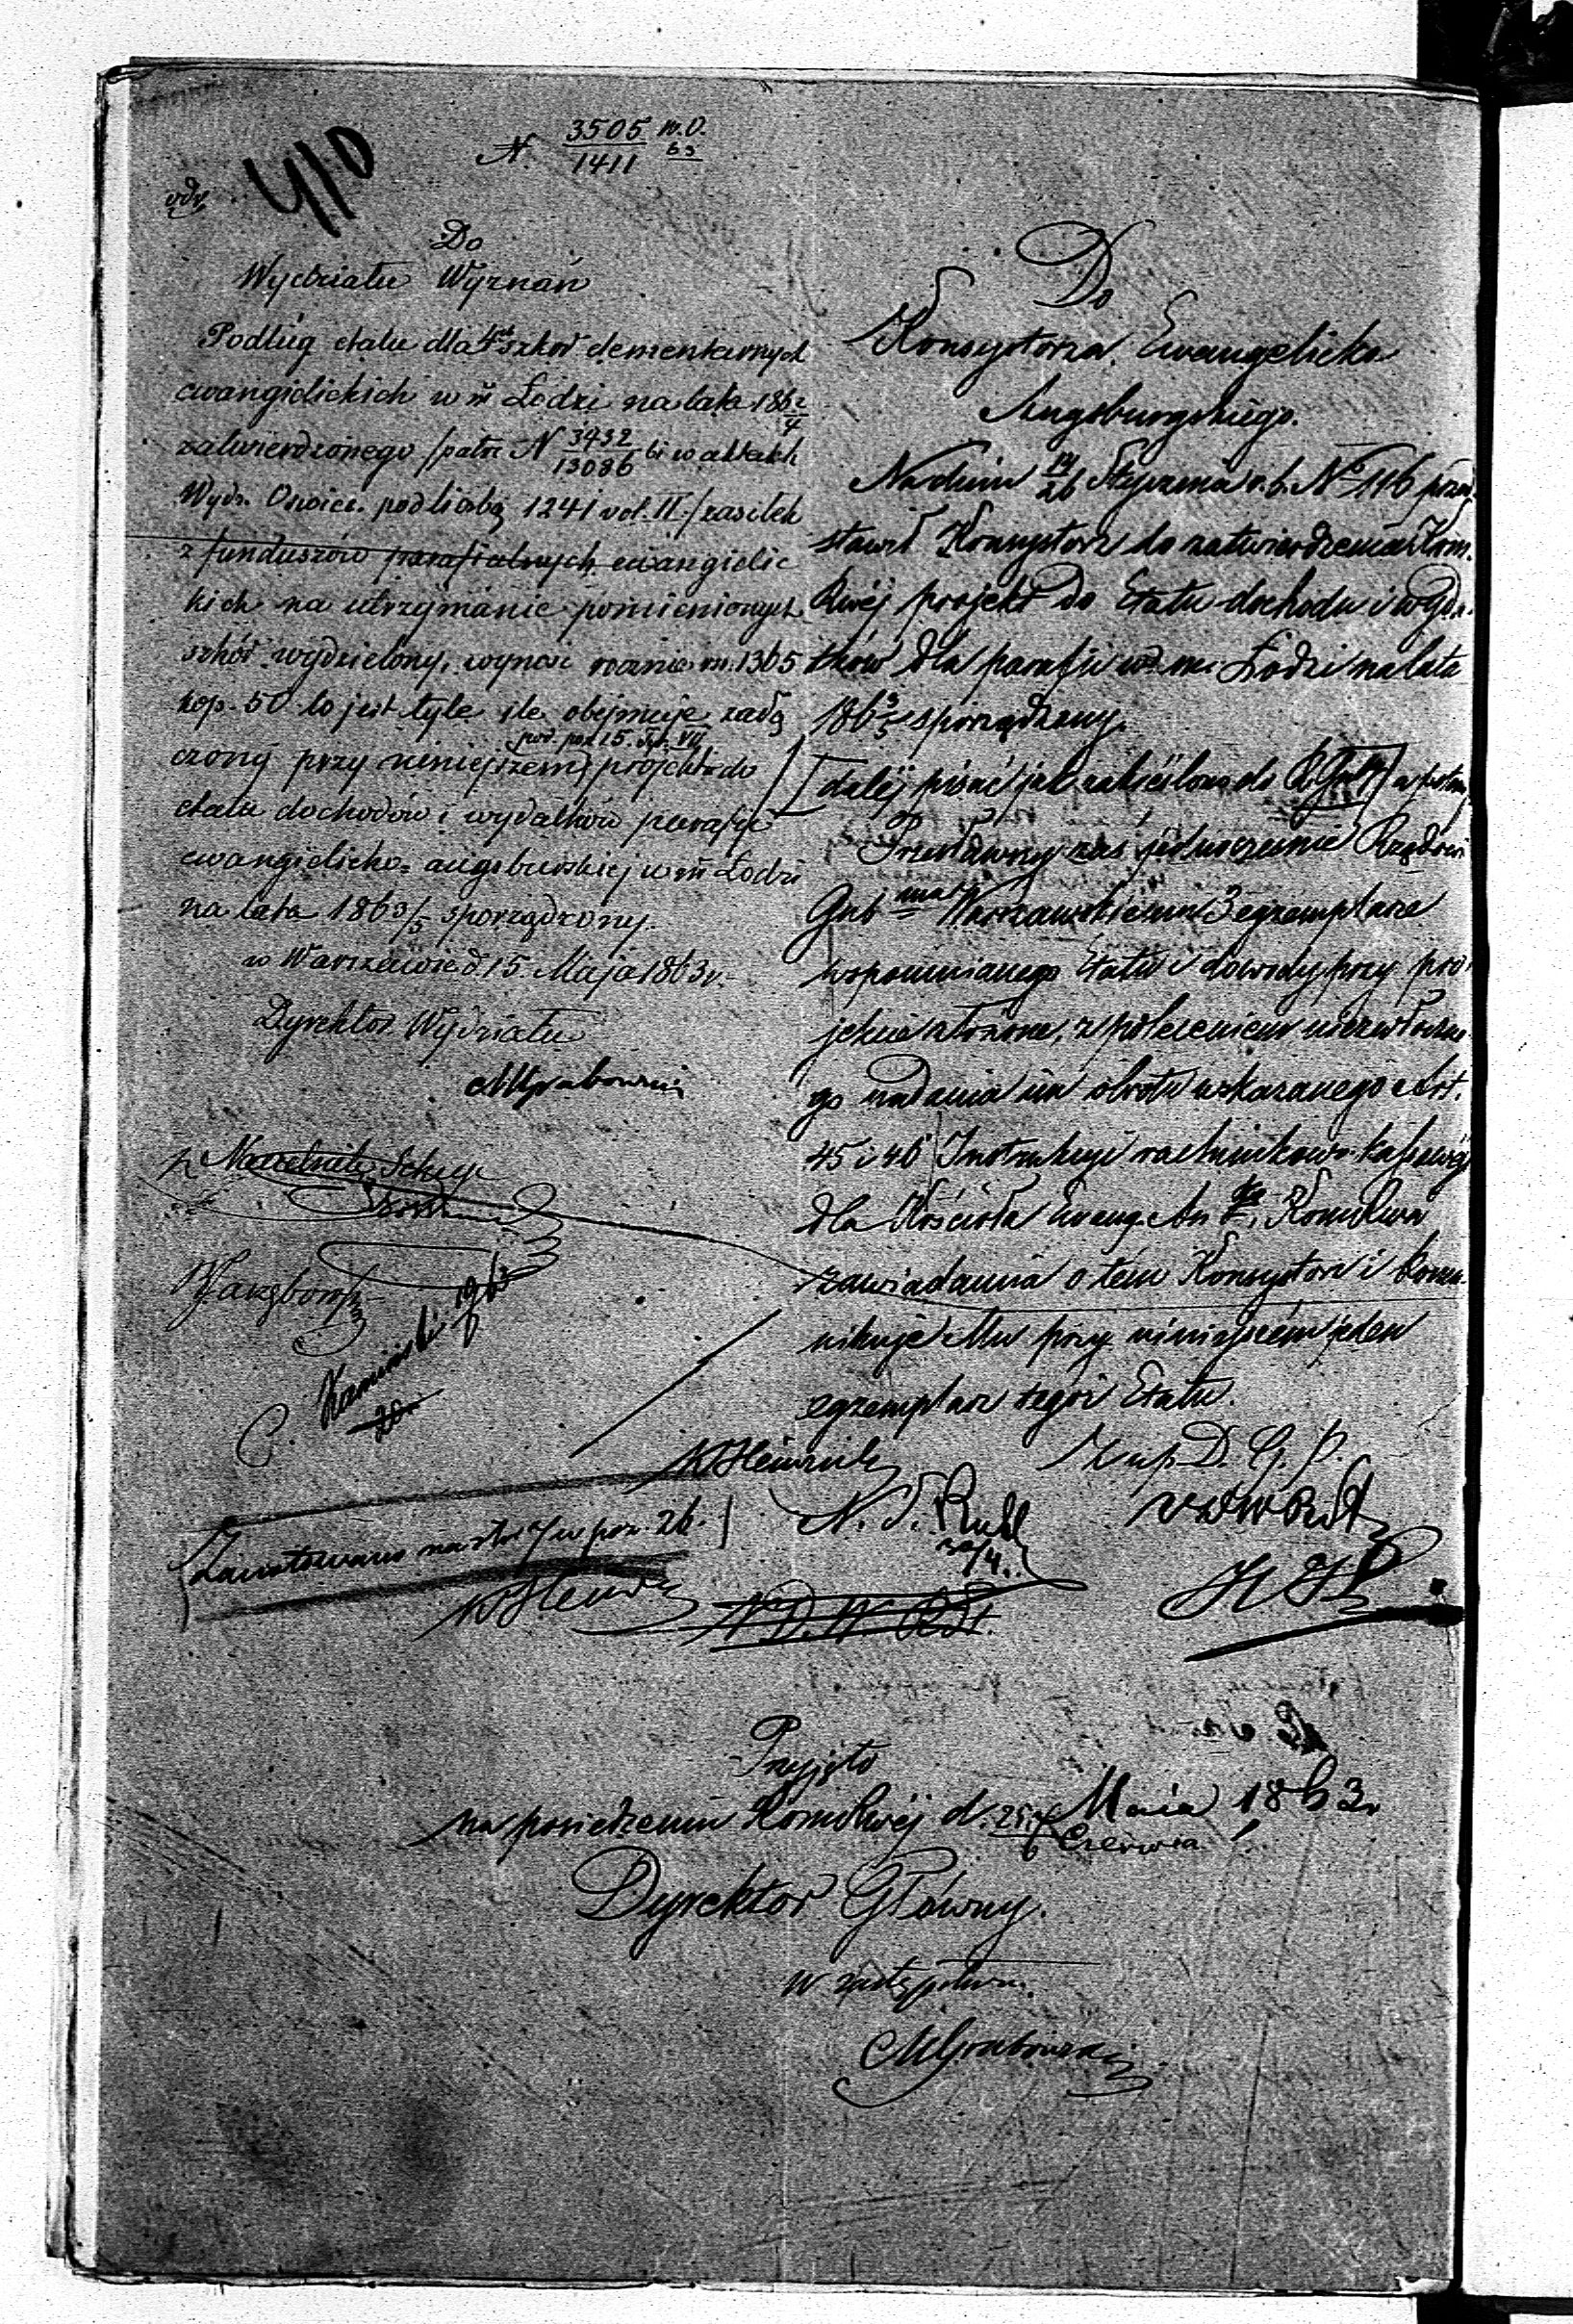 N 3505/1411 w.O. 63
odp. 410
Do
Wydziału Wyznań
Podług etatu dla 4ch szkół elementarnych
ewangielickich w m Łodzi na lata 1862/4
zatwierdzonego /patrz N 3932/13086 bi w aktach
Wydz. Oświec. pod liczbą 1241 vol. II/ zasiłek
z funduszów parafialnych ewangielic
kich na utrzymanie pomienionych
szkół wydzielony, wynosi rocznie rs. 1365
kop. 50 to jest tyle ile obejmuje załą
pod poz 15. Tyt. VII
czony przy niniejszem projekt do
etatu dochodów i wydatków parafji
ewangielicko-augsburskiej w m Łodzi
na lata 1863/5 sporządzony.
w Warszawie d 15 Maja 1863 r.
Dyrektor Wydziału
MGrabowski
z Naczelnik Sekcyi
C. Kamiński
20
Zanotowano na str 7 w poz. 26.
Do
Konsystorza Ewangelicko
Augsburskiego.
Na dniu 14/26 Stycznia r.b. N 116 przed
stawił Konsystorz do zatwierdzenia Kom.
Rwéj projekt do Etatu dochodu i wydat
ków dla parafii w m. Łodzi na lata
1863/5 sporządzony.
[dalej pisać jak zakréślono do R. Gub] a potem
Przesławszy zaś jednocześnie Rządowi
Gub mu Warszawskiemu 3 egzemplarze
wspomnianego Etatu i dowody przy pro
jekcie złożone, z poleceniem niezwłoczne
go nadania im obrotu wskazanego Art.
45 i 46 Instrukcyi rachunkowo-kassowéj
dla Kościoła Ewang. Au go, Kom Rwa
zawiadamia o tém Konsystorz i komu
nikuje Mu przy niniejszém jeden
egzemplarz tegoż Etatu.
Z up. D. G. P.
N. S. Ruhl
30/4
N D. W. Rdt.
Przyjęto
na posiedzeniu Kom Rwéj d. 25/6 Maia 1863 r
Czerwca
Dyrektor Główny.
w zastępstwie.
MGrabowski